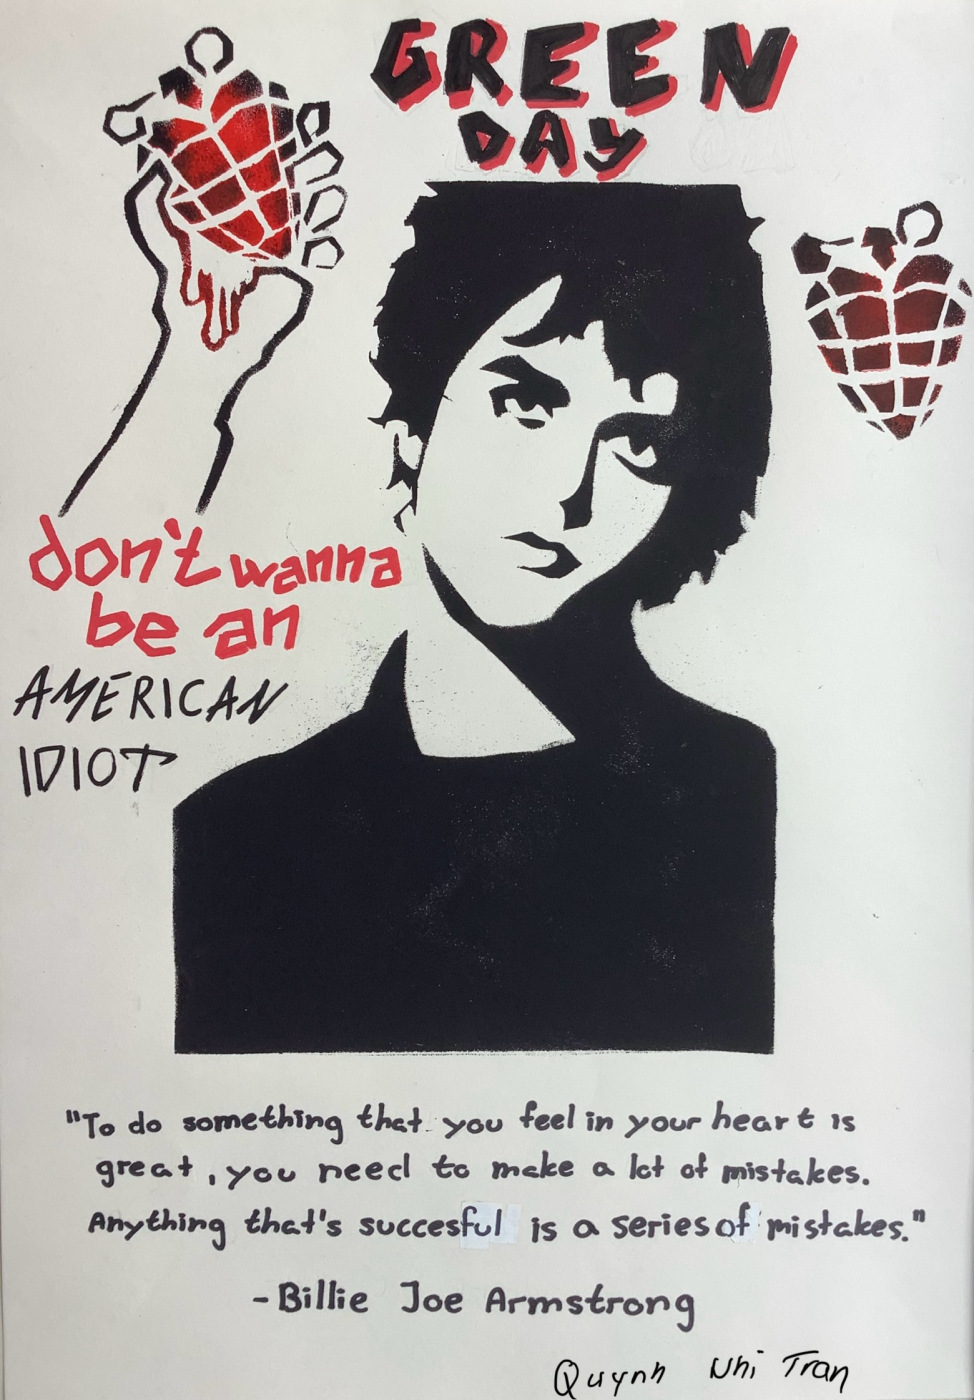 GREEN
DAY
don't wanna
be an
AMERICAN
IDIOT
"To do something that you feel in your heart is
great, you need to make a lot of mistakes.
Anything that's succesful is a series of mistakes."
-Billie Joe Armstrong
Quynh Nhi Tran